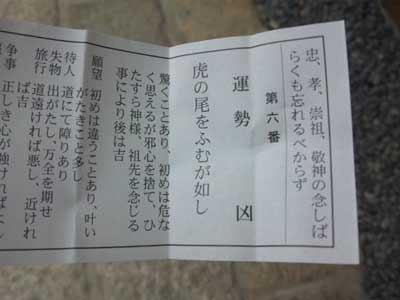 忠、孝、崇祖、敬神の念しば
らくも忘れるべからず
第六番
運勢　凶
虎の尾をふむが如し
驚くことあり、初めは危な
く思えるが邪心を捨て、ひ
たすら神様、祖先を念じる
事により後は吉
願望　初めは違うことあり、叶い
がたきこと多し
待人　道にて障りあり
失物　出がたし、万全を期せ
旅行　道遠ければ悪し、近けれ
ば吉
争事　正しき心が強ければよし